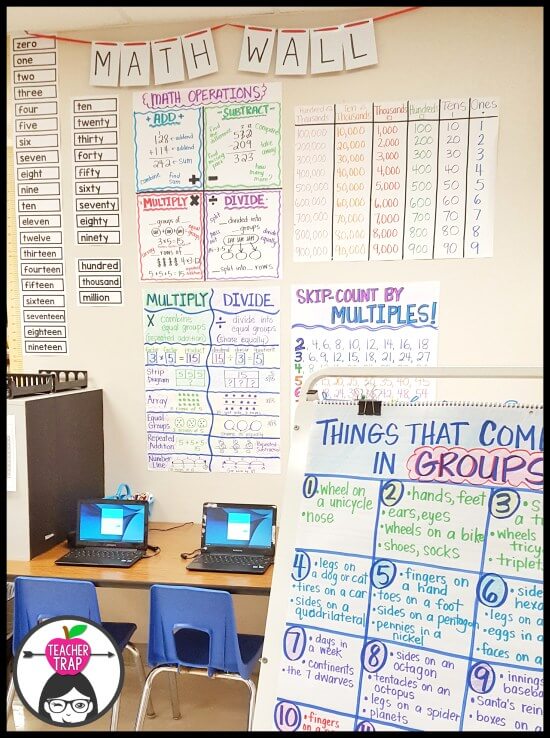 MATH WALL
zero
one
two
three
four
five
six
seven
eight
nine
ten
eleven
twelve
thirteen
fourteen
fifteen
sixteen
seventeen
eighteen
nineteen
ten
twenty
thirty
forty
fifty
sixty
seventy
eighty
ninety
hundred
thousand
million
{MATH OPERATIONS}
ADD
128 ← addend
+114 ← addend
242 ← sum
combine
find sum
+
SUBTRACT
find the difference
532
-209
323
compare
take away
how many more?
-
MULTIPLY ×
groups of
3×5=15
4×3
5+5+5=15
÷ DIVIDE
divided into groups
split equally
split into rows
MULTIPLY DIVIDE
× combine equal groups (repeated addition)
÷ divide into equal groups (share equally)
factor factor product
3 × 5 = 15
dividend divisor quotient
15 ÷ 3 = 5
Strip Diagram
5 5 5
15
? ? ?
Array
Equal Groups
Repeated Addition
5+5+5
Repeated Subtraction
Number Line
Hundred Thousands Ten Thousands Thousands Hundreds Tens Ones
100,000 10,000 1,000 100 10 1
200,000 20,000 2,000 200 20 2
300,000 30,000 3,000 300 30 3
400,000 40,000 4,000 400 40 4
500,000 50,000 5,000 500 50 5
600,000 60,000 6,000 600 60 6
700,000 70,000 7,000 700 70 7
800,000 80,000 8,000 800 80 8
900,000 90,000 9,000 900 90 9
SKIP-COUNT BY
MULTIPLES!
2 2, 4, 6, 8, 10, 12, 14, 16, 18
3 3, 6, 9, 12, 15, 18, 21, 24, 27
THINGS THAT COM
IN GROUPS
① • wheel on a unicycle
• nose
② • hands, feet
• ears, eyes
• wheels on a bike
• shoes, socks
③
tricy
triplet
④ • legs on a dog or cat
• tires on a car
• sides on a quadrilateral
⑤ • fingers on a hand
• toes on a foot
• sides on a pentagon
• pennies in a nickel
⑥ • side
hexa
• legs on a
• eggs in a
• faces on a
⑦ • days in a week
• continents
• the 7 dwarves
⑧ • sides on an octagon
• tentacles on an octopus
• legs on a spider
• planets
⑨ • innings
baseba
• Santa's rein
• boxes on a
⑩ • fingers on
TEACHER
TRAP